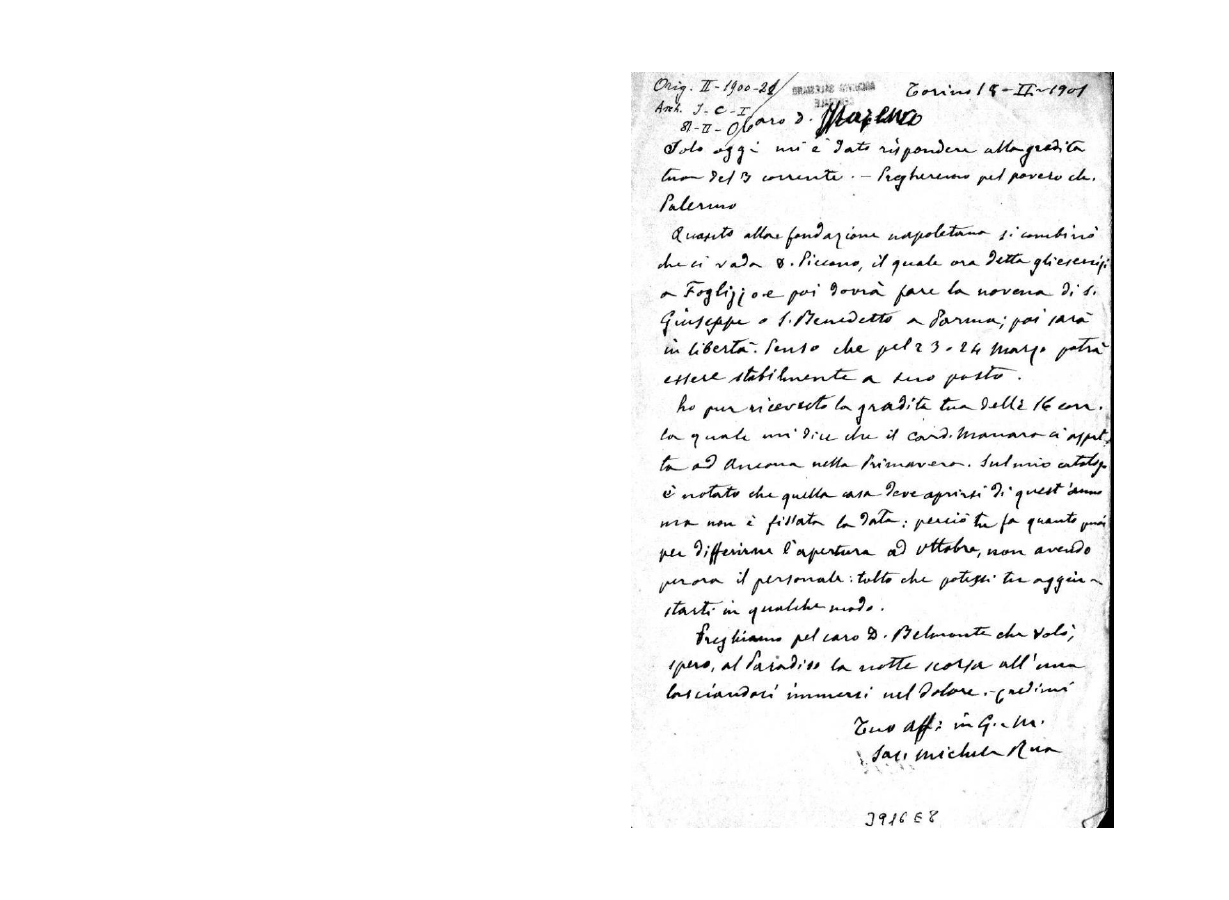 Orig. II-1900-21
Torino 18-II-1901
Arch. I-C-I
Caro D.
81-II-
Solo oggi mi è dato rispondere alla gradita
tua del 3 corrente. - Pregheremo pel povero ch.
Palermo
Quanto alla fondazione napoletana si combinò
che ci vada D. Piccono, il quale ora detta gli esercizi
a Foglizzo e poi dovrà fare la novena di S.
Giuseppe a S. Benedetto a Parma; poi sarà
in libertà. Penso che pel 23-24 Marzo potrà
essere stabilmente a suo posto.
Ho pur ricevuto la gradita tua delli 16 corr.
la quale mi dice che il Card. Manara ci aspet-
ta ad Ancona nella Primavera. Sul mio catalogo
è notato che quella casa deve aprirsi di quest'anno
ma non è fissata la data; perciò tu fa quanto puoi
per differirne l'apertura ad Ottobre, non avendo
per ora il personale: tolto che potessi tu aggiu-
starti in qualche modo.
Preghiamo pel caro D. Belmonte che volò,
spero, al Paradiso la notte scorsa all'una
lasciandoci immersi nel dolore. - Credimi
Tuo Aff: in G. e M.
Sac. Michele Rua
3916 E 8